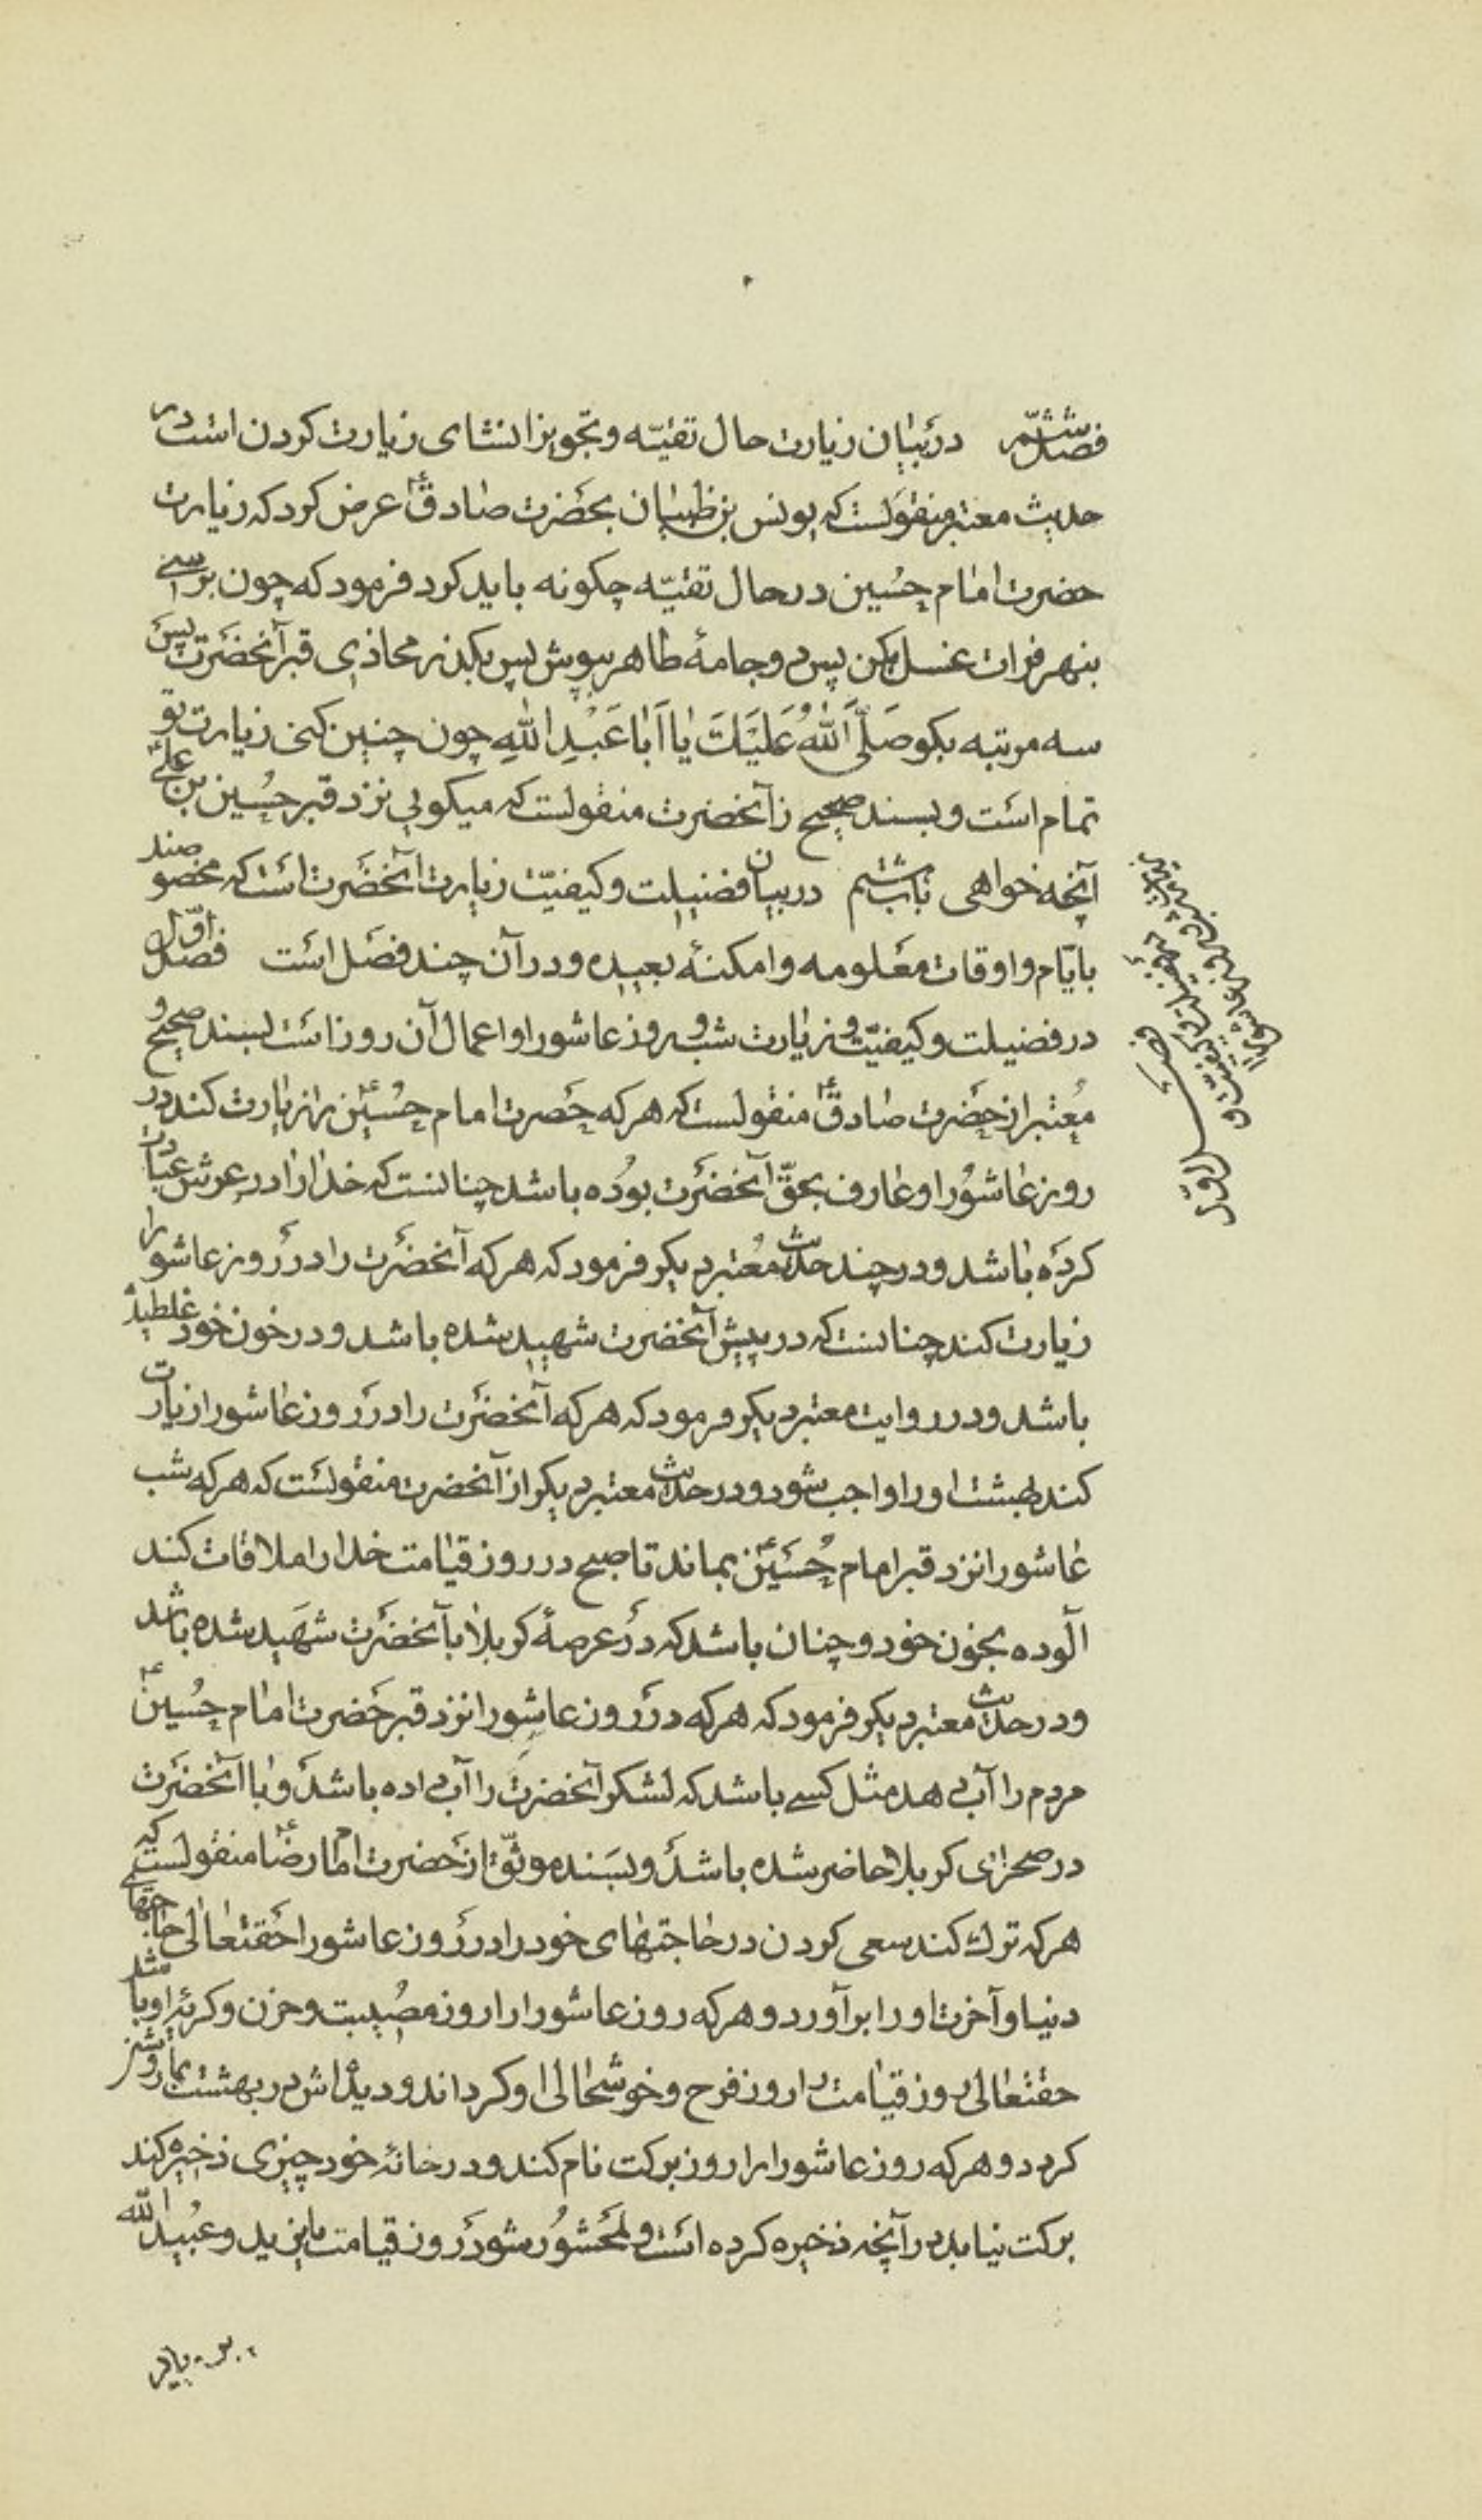 فصل ششم در بیان زیارت حال تقیّه و تجویز انشای زیارت کردن است در
حدیث معتبر منقولست که یونس بن ظبیان بحضرت صادقؑ عرض کرد که زیارت
حضرت امام حُسین در حال تقیّه چکونه باید کرد فرمود که چون برسی
بنهر فرات غسل بکن پس دو جامهٔ طاهر بپوش پس بکذر محاذی قبر آنحضرت پس
سه مرتبه بکو صَلَّی اللّٰهُ عَلَیْکَ یٰا اَبٰا عَبْدِ اللّٰهِ چون چنین کنی زیارت تو
تمام است و بسند صحیح ز آنحضرت منقولست که میکویی نزد قبر حُسین بن علیؑ
آنچه خواهی باب ششم در بیان فضیلت و کیفیّت زیارت آنحضرت است که مخصوصند
بایّام و اوقات معلومه و امکنهٔ بعیده و در آن چند فصل است فصل اوّل
در فضیلت و کیفیّت و زیارت شب و روز عاشورا و اعمال آن روز است بسند صحیح و
مُعتبر از حضرت صادقؑ منقولست که هر که حضرت امام حُسینؑ را زیارت کند در
روز عاشوُرا و عارف بحقّ آنحضرت بوُده باشد چنانست که خدا را در عرش عبادت
کرده باشد و در چند حدیث معُتبر دیکر فرمود که هر که آنحضرت را در روز عاشورا
زیارت کند چنانست که در پیش آنحضرت شهید شده باشد و در خون خود غلطیده
باشد و در روایت معتبر دیکر فرمود که هر که آنحضرت را در روز عاشورا زیارت
کند بهشت او را واجب شود و در حدیث معتبر دیکر از آنحضرت منقولست که هر که شب
عاشورا نزد قبر امام حُسَینؑ بماند تا صبح در روز قیامت خدا را ملاقات کند
آلوده بخون خود و چنان باشد که در عرصهٔ کربلا با آنحضرت شهید شده باشد
و در حدیث معتبر دیکر فرمود که هر که در روز عاشورا نزد قبر حضرت امام حُسینؑ
مردم را آب دهد مثل کسی باشد که لشکر آنحضرت را آب داده باشد و با آنحضرت
در صحرای کربلا حاضر شده باشد و بسَند موثّق از حضرت امام رضاؑ منقولست که
هر که ترک کند سعی کردن در حاجتهای خود را در روز عاشورا حقتعالی حاجتهای
دنیا و آخرت او را برآورد و هر که روز عاشورا را روز مصُیبت و حزن و کریهٔ او باشد
حقتعالی روز قیامت را روز فرح و خوشحالی او کرداند و دیدهٔاش در بهشت بما روشن
کردد و هر که روز عاشورا را روز برکت نام کند و در خانهٔ خود چیزی ذخیره کند
برکت نیابد در آنچه ذخیره کرده است و محَشوُر شود روز قیامت با یزید و عبُید اللّٰه
فصل اوّل
در فضیلت و کیفیّت و
زیارت شب و روز عاشورا